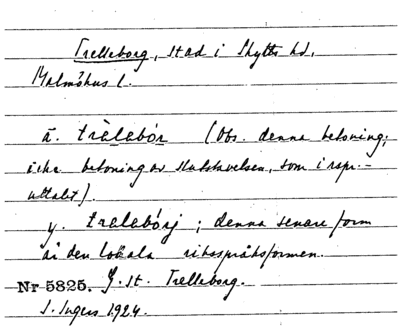 Trelleborg, stad i Skytts hd,
Malmöhus l.
ä. trälabór (Obs. denna betoning;
icke betoning av slutstavelsen, som i rspr:-
uttalet).
y. tralabórj ; denna senare form
är den lokala riksspråksformen.
Nr 5825. G. st. Trelleborg.
S. Ingers 1924.